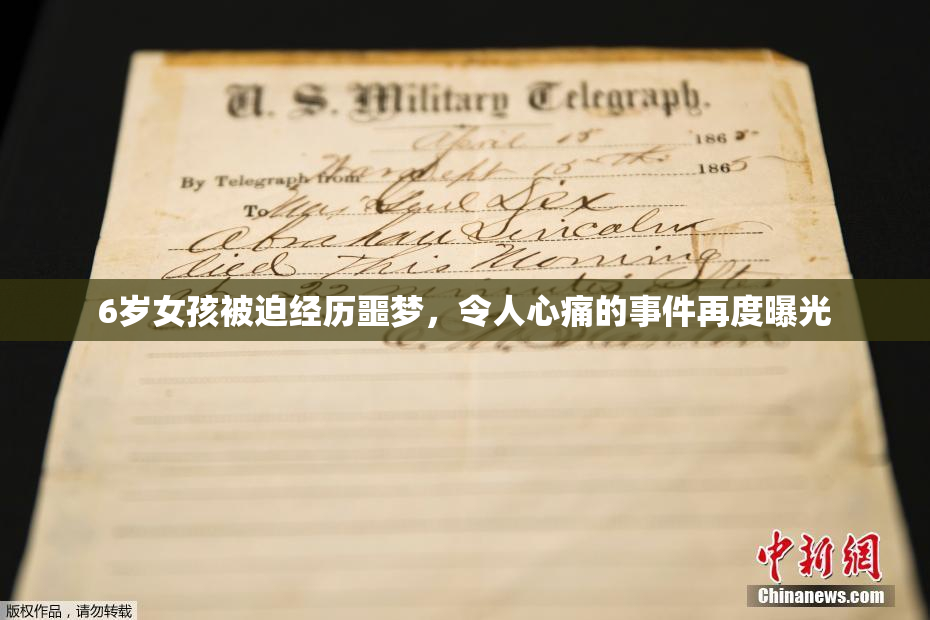 U. S. Military Telegraph.
April 15 1865
By Telegraph from War Dept 15th 1865
To Maj Genl Dix
Abraham Lincoln
died This Morning
at 22 minutes after
6岁女孩被迫经历噩梦，令人心痛的事件再度曝光
中新網
Chinanews.com
版权作品，请勿转载